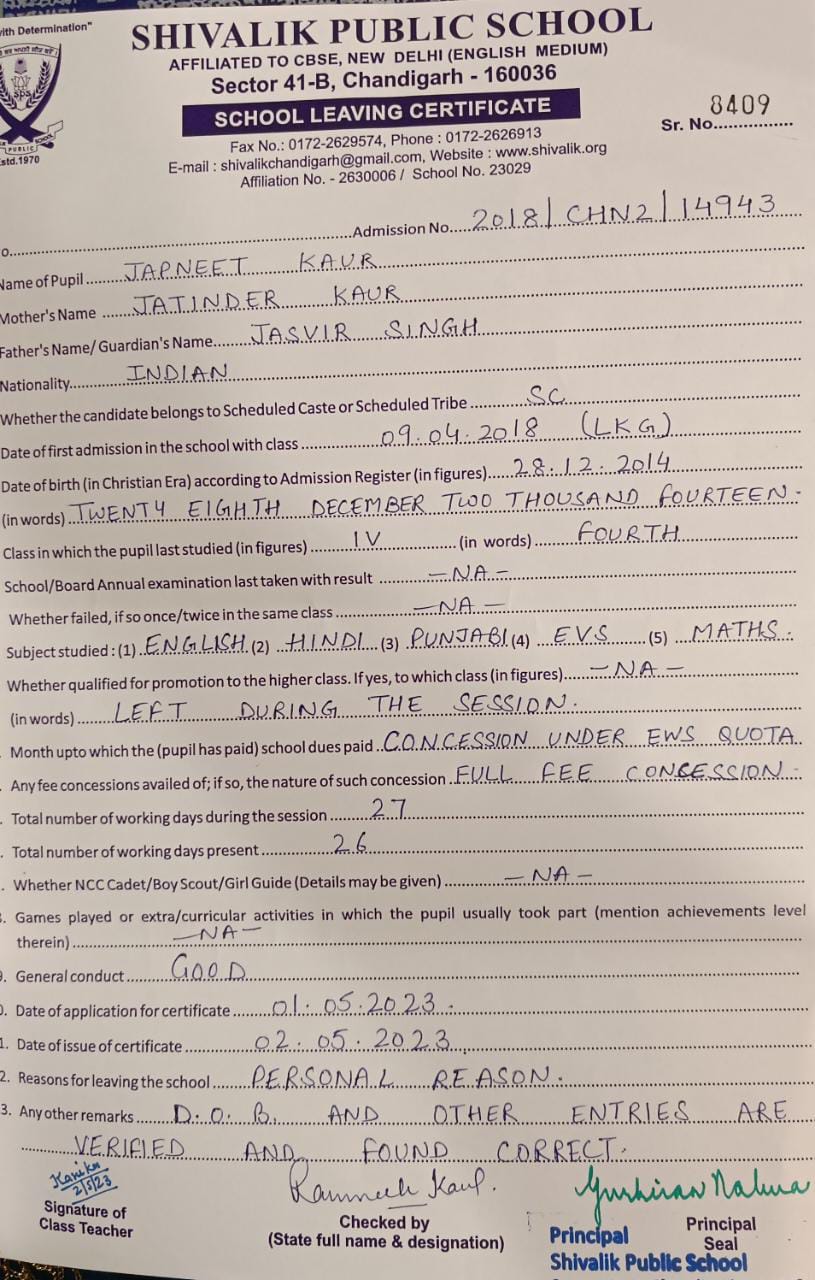 with Determination"
SHIVALIK PUBLIC SCHOOL
AFFILIATED TO CBSE, NEW DELHI (ENGLISH MEDIUM)
Sector 41-B, Chandigarh - 160036
SCHOOL LEAVING CERTIFICATE
8409
Sr. No...............
Fax No.: 0172-2629574, Phone : 0172-2626913
E-mail : shivalikchandigarh@gmail.com, Website : www.shivalik.org
Affiliation No. - 2630006 / School No. 23029
SPS
PUBLIC
Estd.1970
o. Admission No. 2018/CHN2/14943
Name of Pupil JAPNEET KAUR
Mother's Name JATINDER KAUR
Father's Name/ Guardian's Name JASVIR SINGH
Nationality INDIAN
Whether the candidate belongs to Scheduled Caste or Scheduled Tribe SC
Date of first admission in the school with class 09.04.2018 (LKG)
Date of birth (in Christian Era) according to Admission Register (in figures) 28.12.2014
(in words) TWENTY EIGHTH DECEMBER TWO THOUSAND FOURTEEN -
Class in which the pupil last studied (in figures) IV (in words) FOURTH
School/Board Annual examination last taken with result -NA-
Whether failed, if so once/twice in the same class -NA-
Subject studied : (1) ENGLISH (2) HINDI (3) PUNJABI (4) EVS (5) MATHS.
Whether qualified for promotion to the higher class. If yes, to which class (in figures) -NA-
(in words) LEFT DURING THE SESSION.
. Month upto which the (pupil has paid) school dues paid CONCESSION UNDER EWS QUOTA
. Any fee concessions availed of; if so, the nature of such concession FULL FEE CONCESSION -
. Total number of working days during the session 27
. Total number of working days present 26
. Whether NCC Cadet/Boy Scout/Girl Guide (Details may be given) -NA-
. Games played or extra/curricular activities in which the pupil usually took part (mention achievements level
therein) -NA-
. General conduct GOOD
. Date of application for certificate 01.05.2023.
1. Date of issue of certificate 02.05.2023
2. Reasons for leaving the school PERSONAL REASON.
3. Any other remarks D.O.B. AND OTHER ENTRIES ARE
VERIFIED AND FOUND CORRECT.
Kanika
2/5/23
Signature of
Class Teacher
Checked by
(State full name & designation)
Principal
Seal
Principal
Shivalik Public School